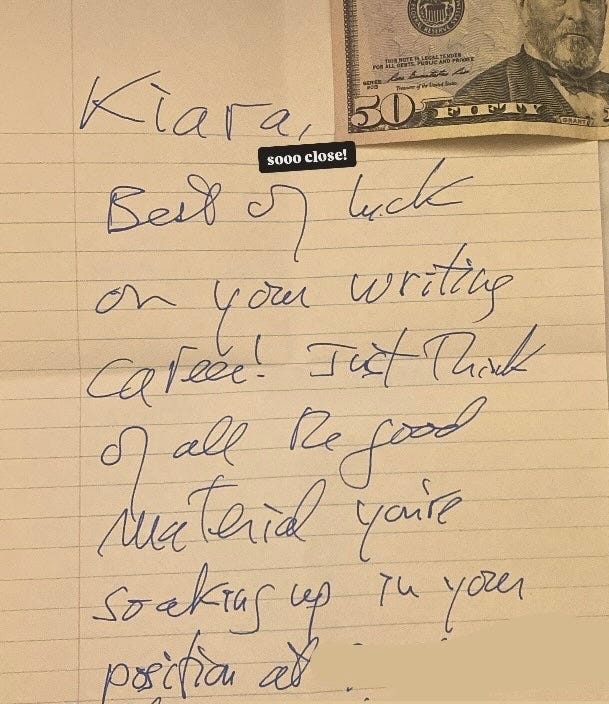 THIS NOTE IS LEGAL TENDER
FOR ALL DEBTS, PUBLIC AND PRIVATE
Treasurer of the United States
50 FIFTY
GRANT
Kiara,
sooo close!
Best of luck
on your writing
career! Just Think
of all the good
material you're
soaking up in your
position at